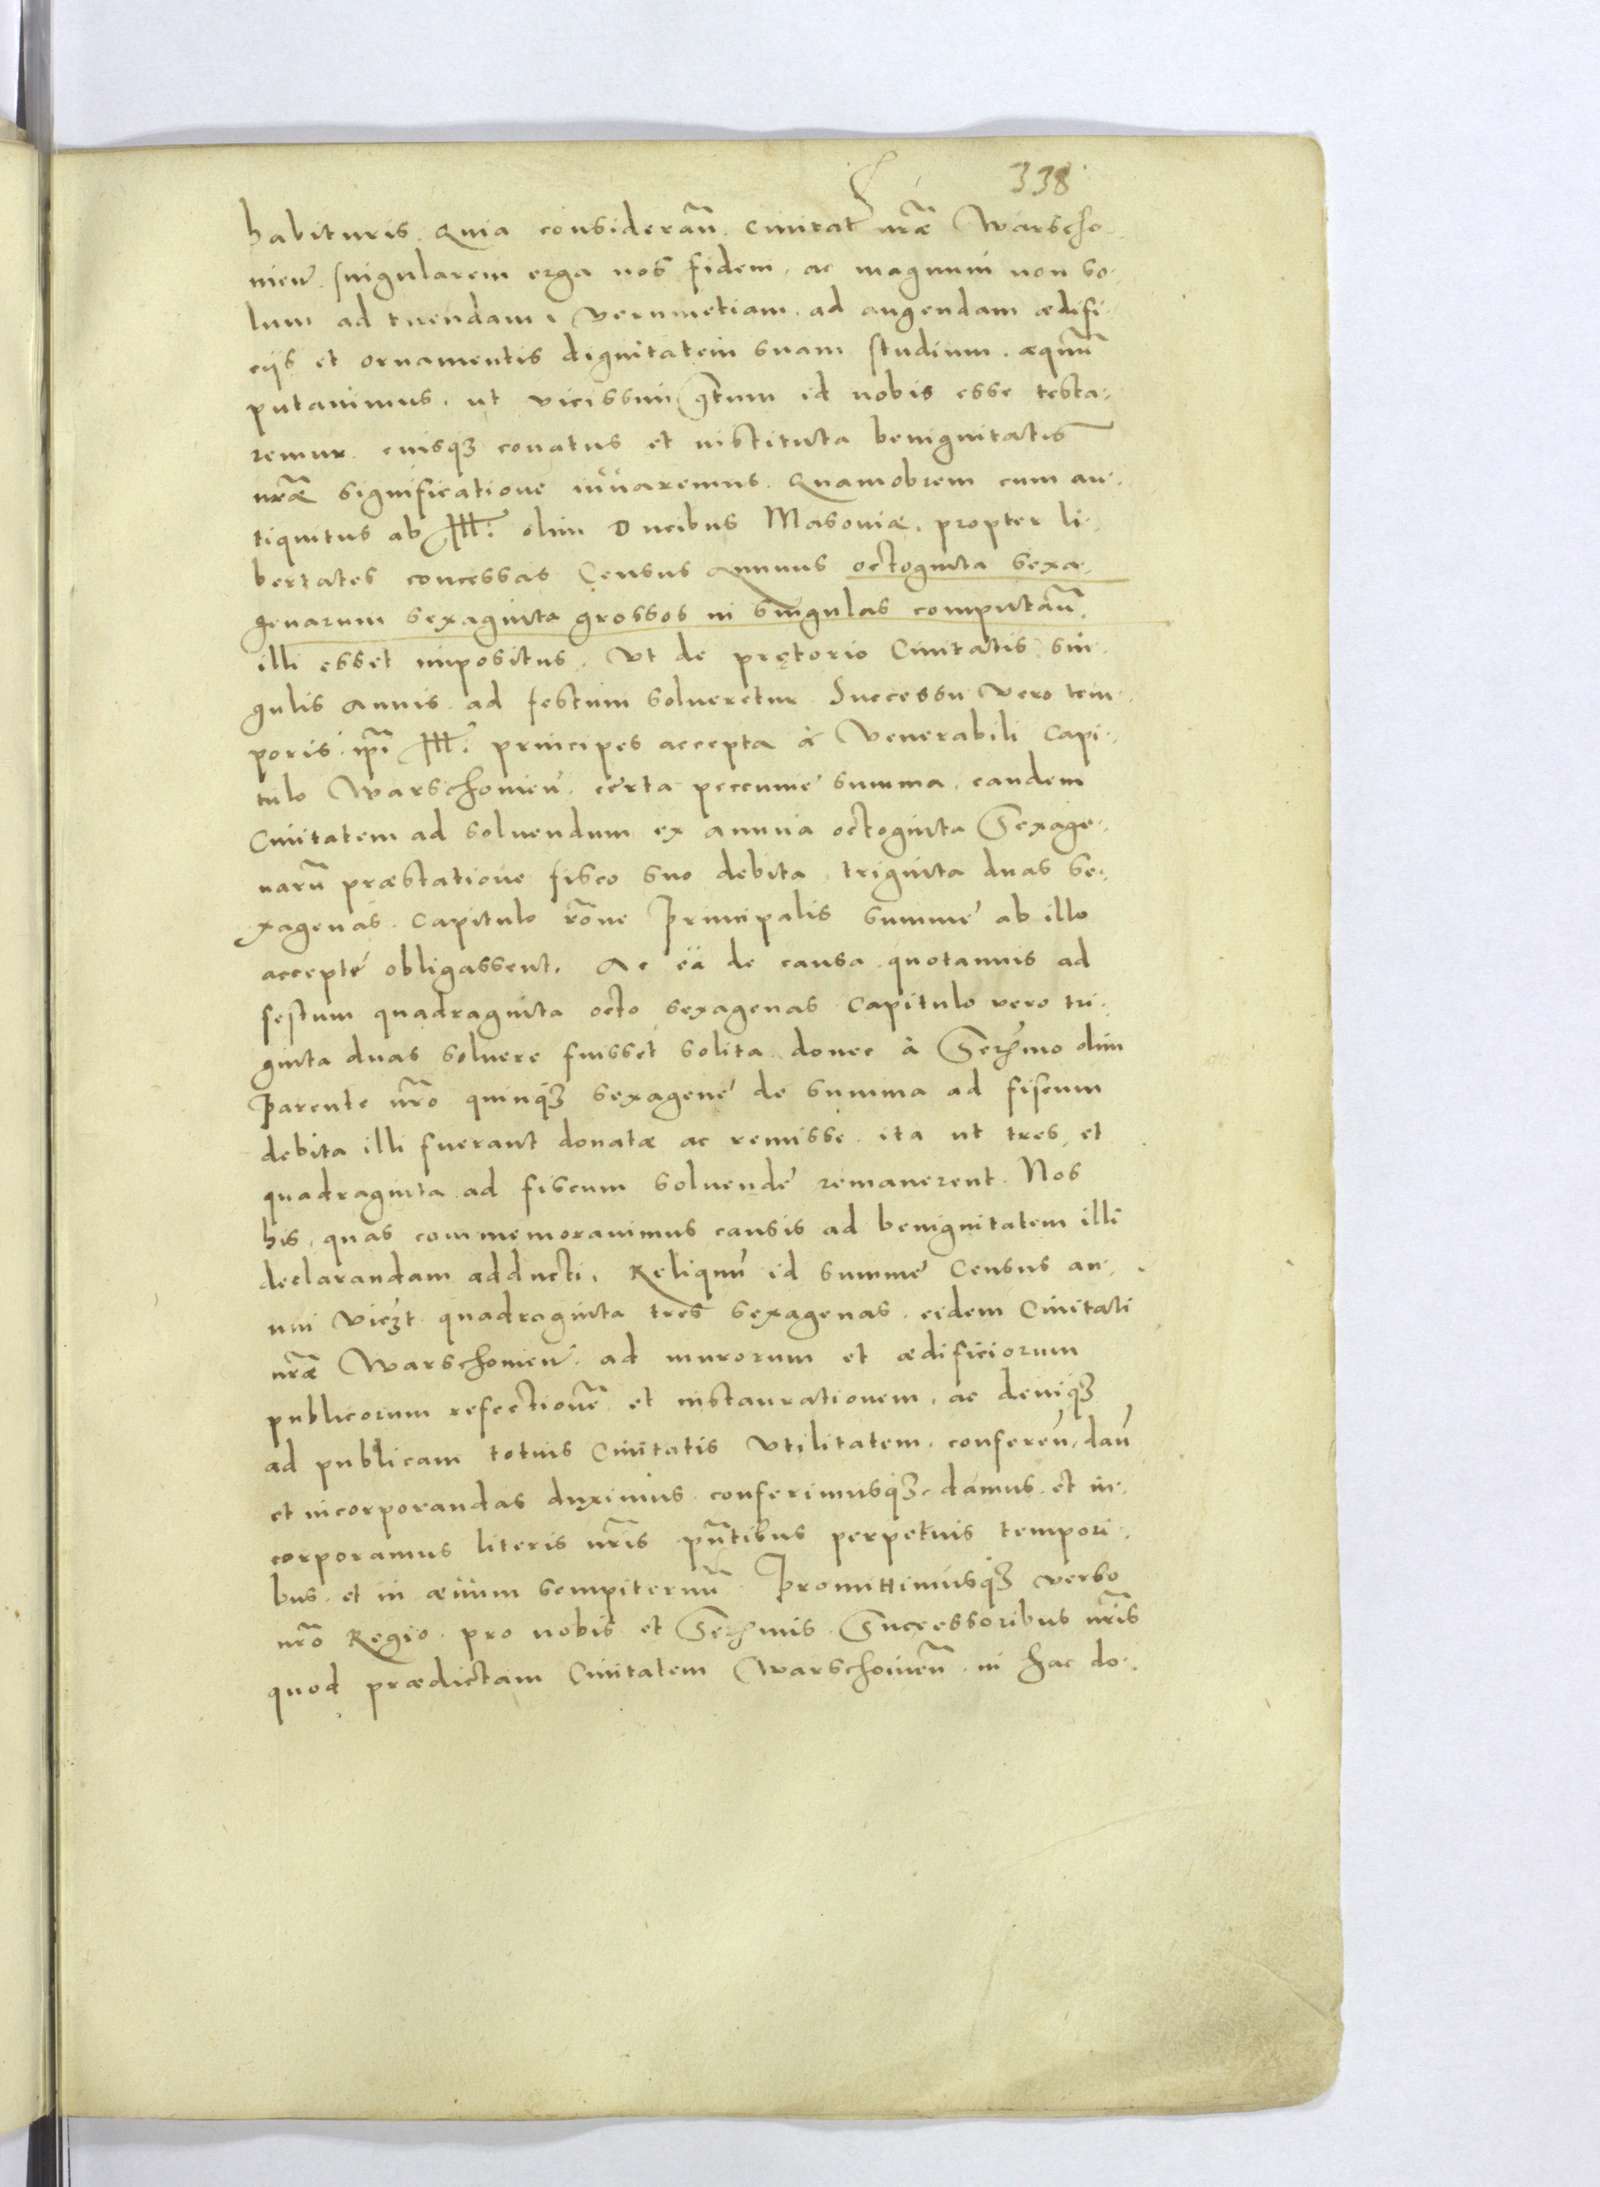 338
habituris. Quia considerañ. Civitat̃ nr̃æ Warscho-
vieñ. singularem erga nos fidem, ac magnum non so-
lum ad tuendam, verumetiam ad augendam ædifi-
cijs et ornamentis dignitatem suam studium, æquũ
putavimus, ut vicissim id nobis esse testa-
remur. eiusq3 conatus et instituta benignitatis
nr̃æ significatione iuvaremus. Quamobrem cum an-
tiquitus ab Ill. olim Ducibus Masoviæ, propter li-
bertates concessas Census Annuus octoginta sexa-
genarum sexaginta grossos in singulas computañ.
illi esset impositus. Ut de prętorio Civitatis sin-
gulis Annis ad festum solveretur. Successu vero tem-
poris ip̃i Ill. principes accepta à Venerabili Capi-
tulo Warschovieñ. certa peccunie summa, eandem
Civitatem ad solvendum ex annua octoginta Sexage-
narũ præstatione fisco suo debita, triginta duas se-
xagenas. Capitulo rõne Principalis summe ab illo
accepte obligassent. Ac ea de causa quotannis ad
festum quadraginta octo sexagenas Capitulo vero tri-
ginta duas solvere fuisset solita, donec à Serẽmo olim
Parente nr̃o quinq3 sexagene de summa ad fiscum
debita illi fuerant donatæ ac remisse. ita ut tres et
quadraginta ad fiscum solvende remanerent. Nos
his, quas commemoravimus causis ad benignitatem illi
declarandam adducti, Reliquũ id summe Census an-
nui vicz̃t quadraginta tres sexagenas, eidem Civitati
nr̃æ Warschovieñ. ad murorum et ædificiorum
publicorum refectionẽ et instaurationem, ac deniq3
ad publicam totius Civitatis Utilitatem, confereñ, dañ
et incorporandas duximus. conferimusq3, damus et in-
corporamus literis nr̃is pñtibus perpetuis tempori-
bus et in ævum sempiternũ. Promittimusq3 verbo
nr̃o Regio pro nobis et Serẽmis Successoribus nr̃is
quod prædictam Civitatem Warschovieñ. in hac do-